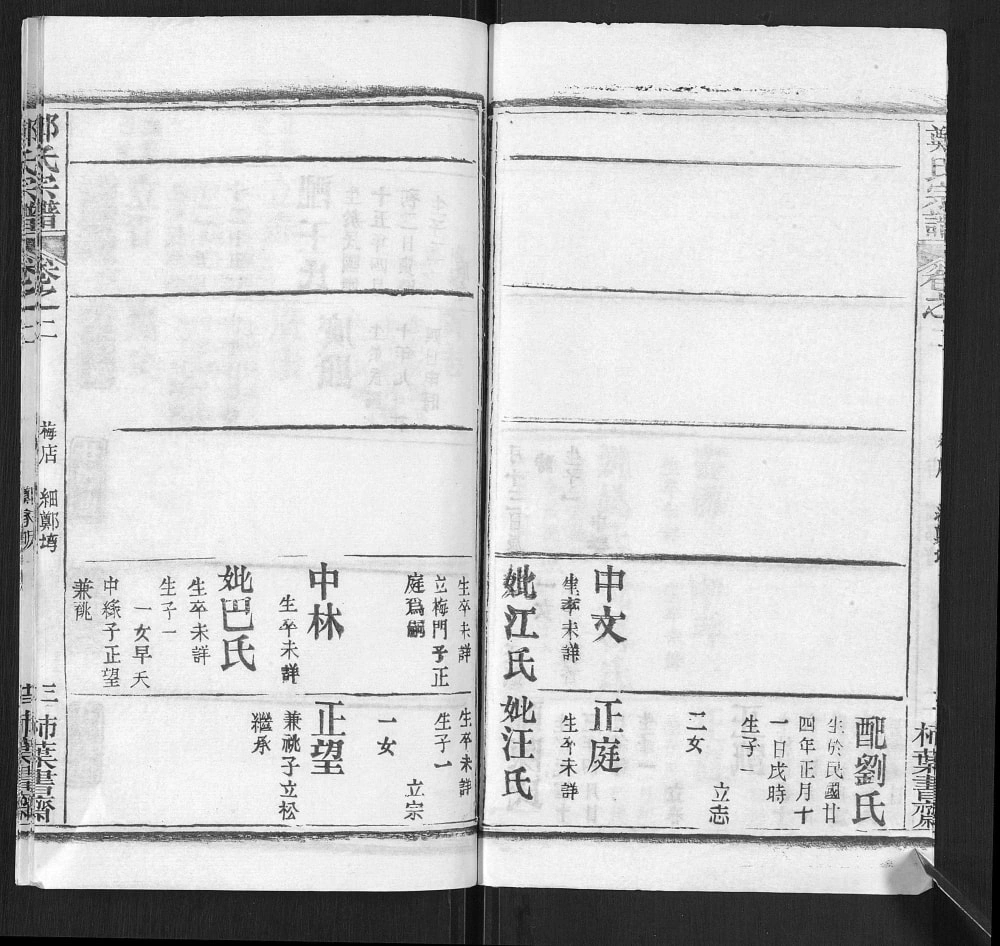 鄭氏宗譜
卷之二
配劉氏
生於民國廿
四年正月十
一日戌時
生子一
立志
二女
中文
生卒未詳
妣江氏
正庭
生卒未詳
妣汪氏
生卒未詳
立梅門子正
庭為嗣
中林
生卒未詳
妣巴氏
生卒未詳
生子一
一女早夭
中綠子正望
兼祧
生卒未詳
生子一
立宗
一女
正望
兼祧子立松
繼承
鄭氏宗譜
卷之二
梅店 細鄭塆
三 柿葉書齋